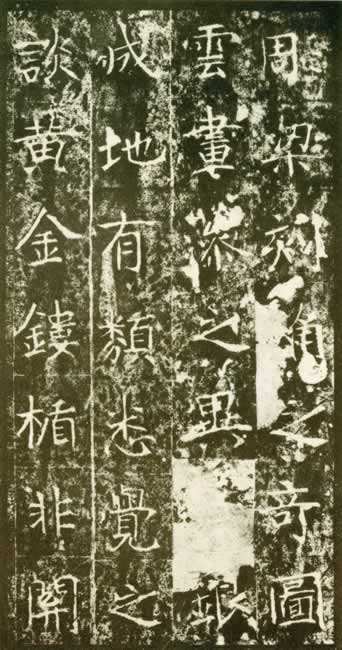 周梁刻之奇圖
雲畫之異
成地有類悉覺之
談黃金鏤楯非關